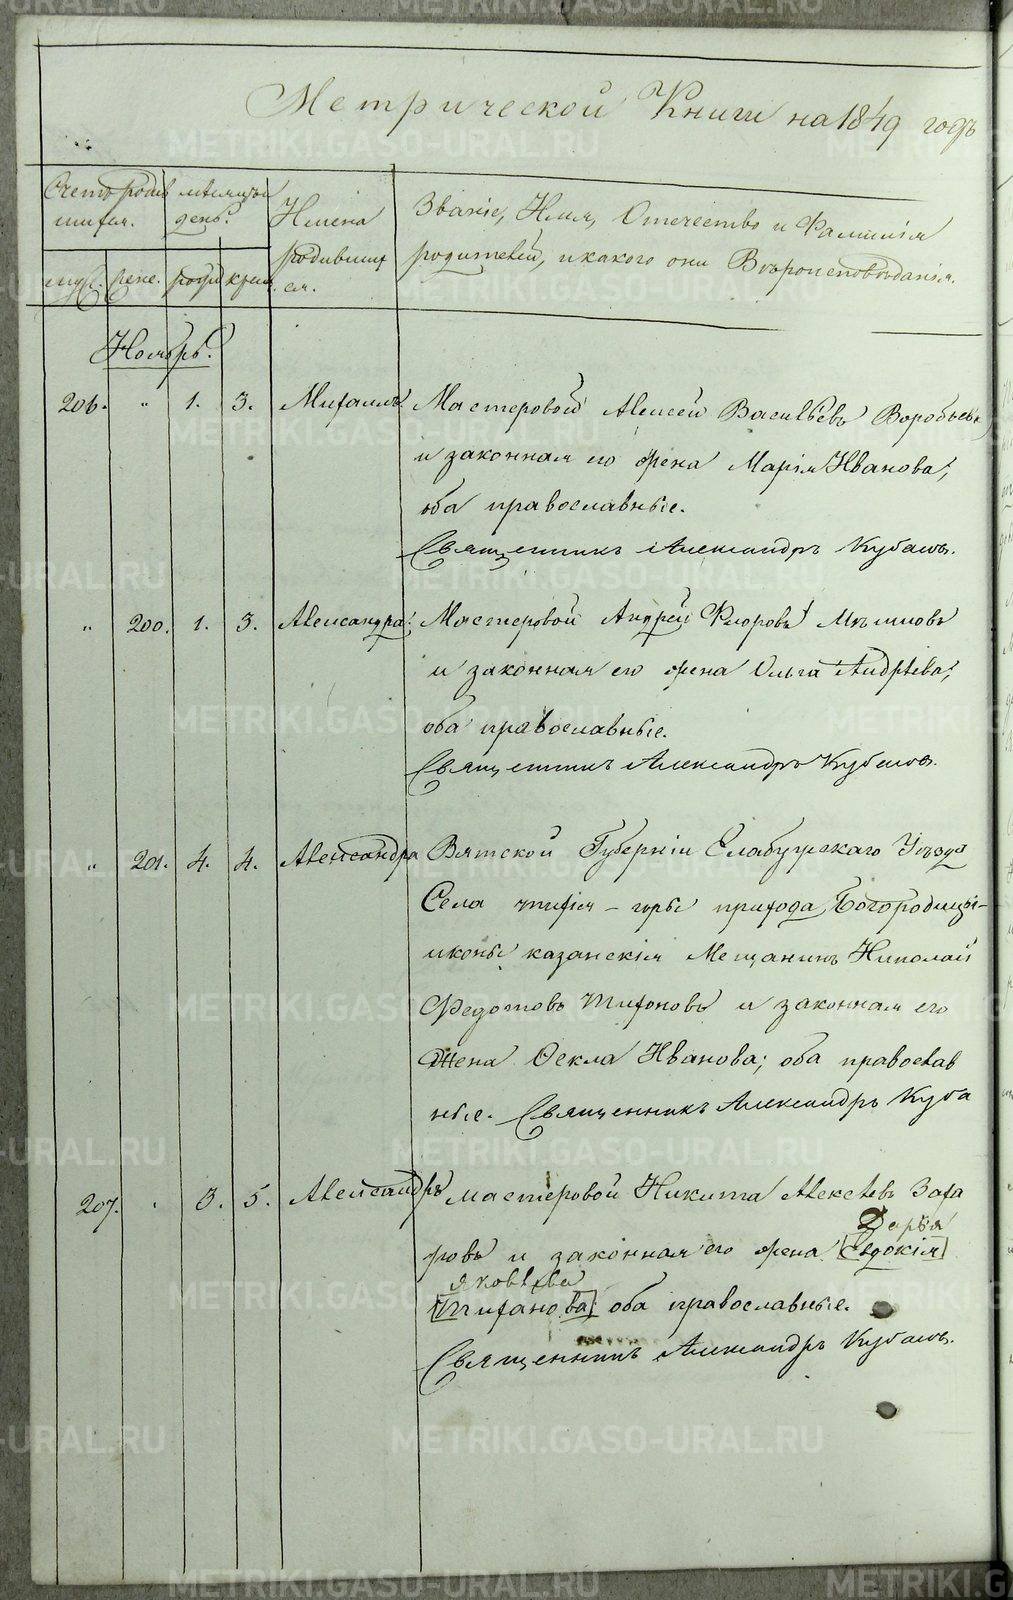 Метрической Книги на 1849 годъ
Счетъ родив
шихся.
муж. жене.
Месяцъ
день.
рожд крещ
Имена
родивших
ся.
Званіе, Имя, Отечество и Фамилія
родителей, и какого они Вѣроисповѣданія.
Ноябрь.
206. " 1. 3. Михаилъ Мастеровой Алексей Васильевъ Воробьевъ
и законная его жена Марія Иванова;
оба православные.
Священникъ Александръ Кубасов.
" 200. 1. 3. Александра; Мастеровой Андрей Флоровъ
и законная его жена Ольга Андрѣева;
оба православные.
Священникъ Александръ Кубасов.
" 201. 4. 4. Александра Вятской Губерніи Елабужскаго Уѣзда
Села тихія - горы прихода, Богородицы-
иконы казанскія Мещанинъ Николай
Федотовъ Тихоновъ и законная его
Жена Фекла Иванова; оба православ
ные. Священникъ Александръ Куба
207. 3. 5. Александръ мастеровой Никита Алексѣевъ Заха
Дарья
ровъ и законная его жена [Евдокія]
яковлева
[Тифанова] оба православные.
Священникъ Александръ Кубасов.
METRIKI.GASO-URAL.RU